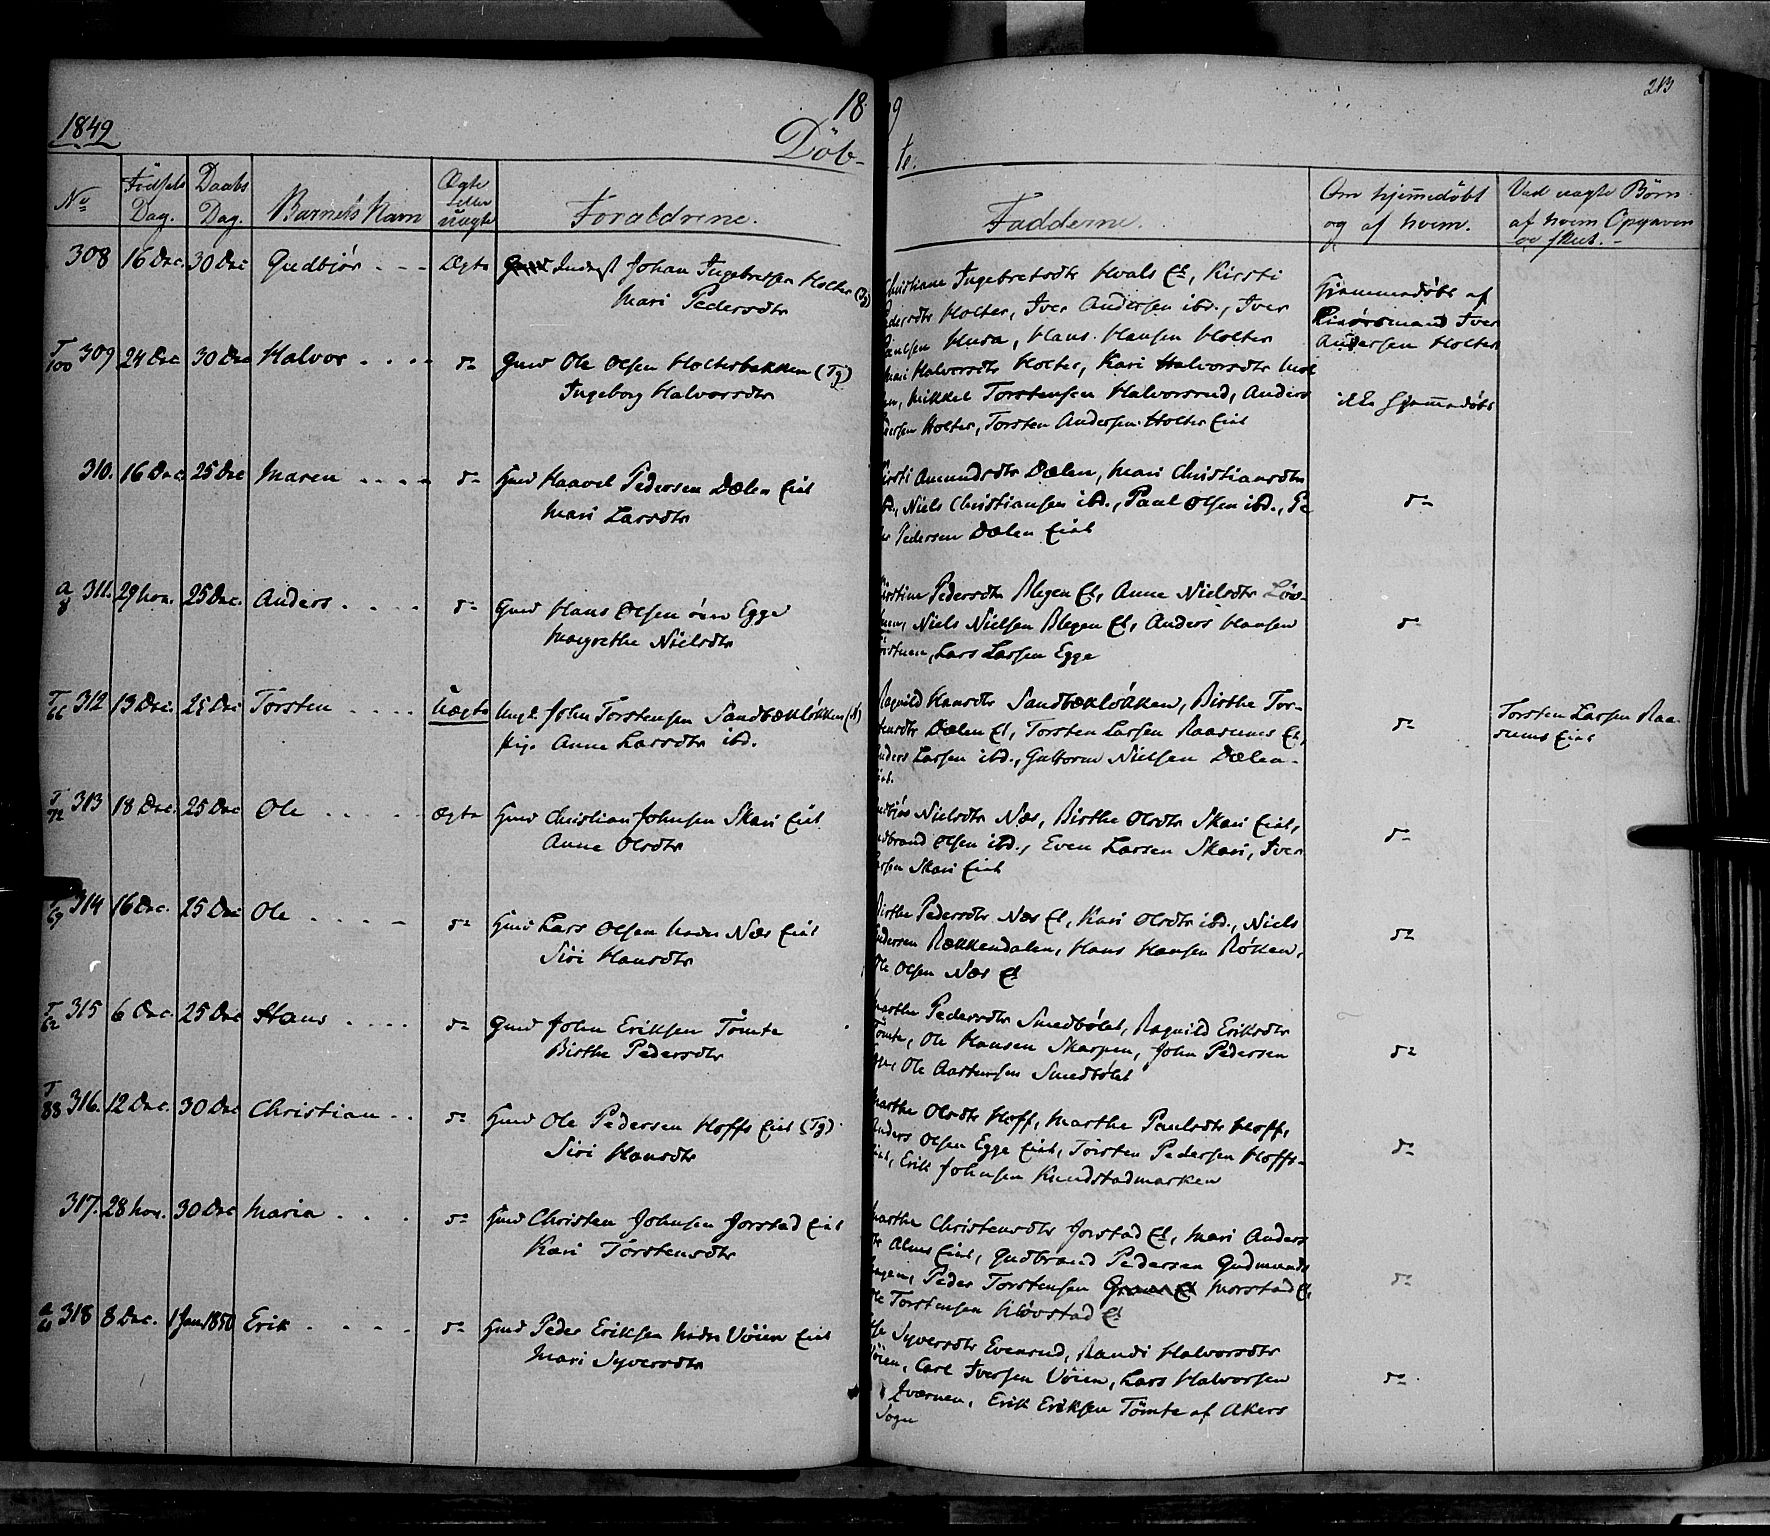 213
1849
18 9
Döb- te.
No
Födsels Dag.
Daabs Dag.
Barnets Navn
Ægte eller uægte
Forældrene.
Fadderne.
Om hjemmedöbt og af hvem.
Ved uægte Börn af hvem Opgaven er skeet.
308 16 Dec. 30 Dec Gudbjör Ægte Inderst Johan Ingebretsen Holter
Mari Pedersdtr
Christiane Ingebretsdtr Hvals Et, Kirsti
Pedersdtr Holter, Iver Andersen ibd., Iver
Paulsen Musa, Hans Hansen Holter
Hjemmedöbt af
Iver
Andersen Holter
T 100 309 24 Dec 30 Dec Halvor do Gmd Ole Olsen Holterbakken (Tg)
Ingeborg Halvorsdtr
Mari Halvorsdtr Holter, Kari Halvorsdtr
Mikkel Torstensen Halvorsrud, Anders
Holter, Torsten Andersen Holter Eiet
ikke hjemmedöbt
310. 16 Dec. 25 Dec Maren do Gmd Haavel Pedersen Dælen Eiet
Mari Larsdtr
Kirsti Amundsdtr Dælen, Mari Christiansdtr
ibd., Niels Christiansen ibd., Paul Olsen ibd., Pe
Pedersen Dælen Eiet
do
A 8 311. 29 Nov. 25 Dec. Anders do Gmd Hans Olsen övre Egge
Margrethe Nielsdtr
Kirstine Pedersdtr Blegen Et, Anne Nielsdtr
Niels Nielsen Blegen Et, Anders Hansen
Lars Larsen Egge
do
T 66 312 13 Dec. 25 Dec Torsten Uægte Ungk. John Torstensen Sandbækløkken
Pige Anne Larsdtr ibd.
Ragnild Hansdtr Sandbækløkken, Birthe Tor-
stensdtr Dælen Et, Torsten Larsen Raasums Et,
Anders Larsen ibd., Guttorm Nielsen Dælen-
eiet.
do
Torsten Larsen Raa-
sums Eiet
T 72 313 18 Dec. 25 Dec Ole Ægte Gmd Christian Johnsen Skari Eiet
Anne Olsdtr
Gudbjör Nielsdtr Næs, Birthe Olsdtr Skari Eiet,
Gudbrand Olsen ibd., Even Larsen Skari, Iver
Larsen Skari Eiet
do
T 69 314 16 Dec. 25 Dec Ole do Gmd Lars Olsen nedre Næs Eiet
Siri Hansdtr
Birthe Pedersdtr Næs Et, Kari Olsdtr ibd., Niels
Andersen Rækkendalen, Hans Hansen Røken,
Ole Olsen Næs Et
do
T 62 315 6 Dec. 25 Dec Hans do Gmd John Eriksen Tömte
Birthe Pedersdtr
Marthe Pedersdtr Smedbölet, Ragnild Eriksdtr
Tömte, Ole Hansen Skarpen, John Pedersen
Ole Aastensen Smedbölet
do
T 88 316. 12 Dec. 30 Dec Christian do Gmd Ole Pedersen Hoffs Eiet (Tg).
Siri Hansdtr
Marthe Olsdtr Hoff, Marthe Paulsdtr Hoff,
Anders Olsen Egge Eiet, Torsten Pedersen Hoffs-
eiet, Erik Johnsen Kundstadmarken
do
317. 28 Nov. 30 Dec Maria do Gmd Christen Johnsen Jorstad Eiet
Kari Torstensdtr
Marthe Christensdtr Jorstad Et, Mari Anders
dtr Alms Eiet, Gudbrand Pedersen Gudmunds
hagen, Peder Torstensen Morstad Et,
Ole Torstensen Klövstad Et
do
318 8 Dec. 1 Jan. 1850 Erik do Gmd Peder Eriksen nedre Vöien Eiet
Mari Syversdtr
Syversdtr Evensrud, Randi Halvorsdtr
Vöien, Carl Iversen Vöien, Lars Halvorsen
Erik Eriksen Tömte af Akers
Sogn
do